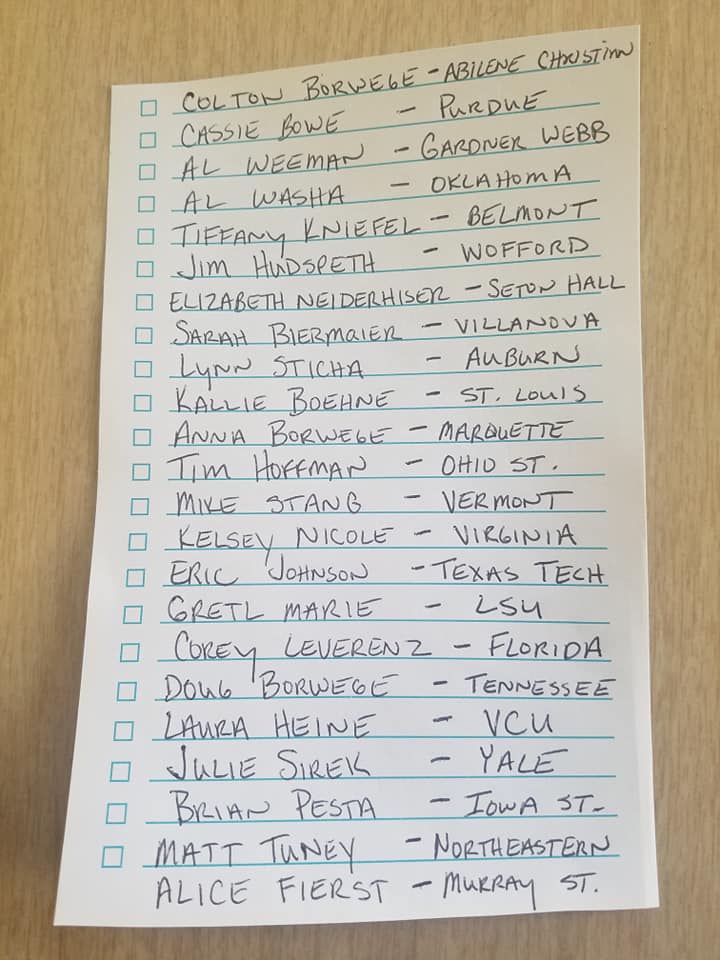 COLTON BORWEGE - ABILENE CHRISTIAN
CASSIE BOWE - PURDUE
AL WEEMAN - GARDNER WEBB
AL WASHA - OKLAHOMA
TIFFANY KNIEFEL - BELMONT
JIM HUDSPETH - WOFFORD
ELIZABETH NEIDERHISER - SETON HALL
SARAH BIERMAIER - VILLANOVA
LYNN STICHA - AUBURN
KALLIE BOEHNE - ST. LOUIS
ANNA BORWEGE - MARQUETTE
TIM HOFFMAN - OHIO ST.
MIKE STANG - VERMONT
KELSEY NICOLE - VIRGINIA
ERIC JOHNSON - TEXAS TECH
GRETL MARIE - LSU
COREY LEVERENZ - FLORIDA
DOUG BORWEGE - TENNESSEE
LAURA HEINE - VCU
JULIE SIREK - YALE
BRIAN PESTA - IOWA ST.
MATT TUNEY - NORTHEASTERN
ALICE FIERST - MURRAY ST.